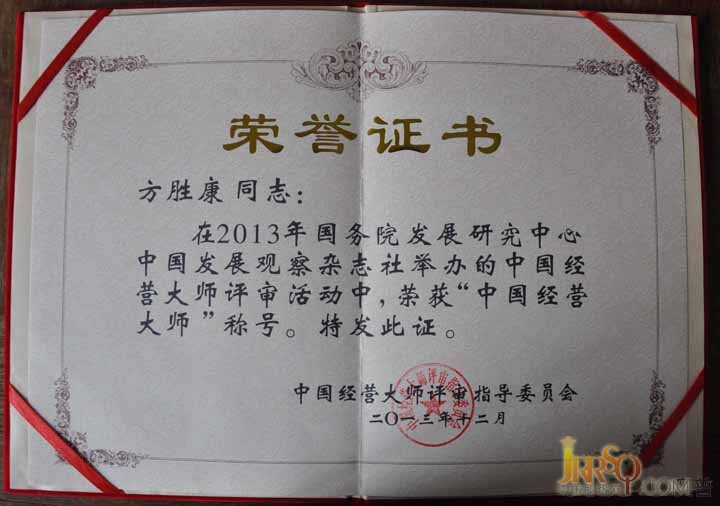 荣誉证书
方胜康 同志：
在2013年国务院发展研究中心
中国发展观察杂志社举办的中国经
营大师评审活动中，荣获“中国经营
大师”称号。特发此证。
中国经营大师评审指导委员会
二〇一三年十二月
JRRSQ
.COM